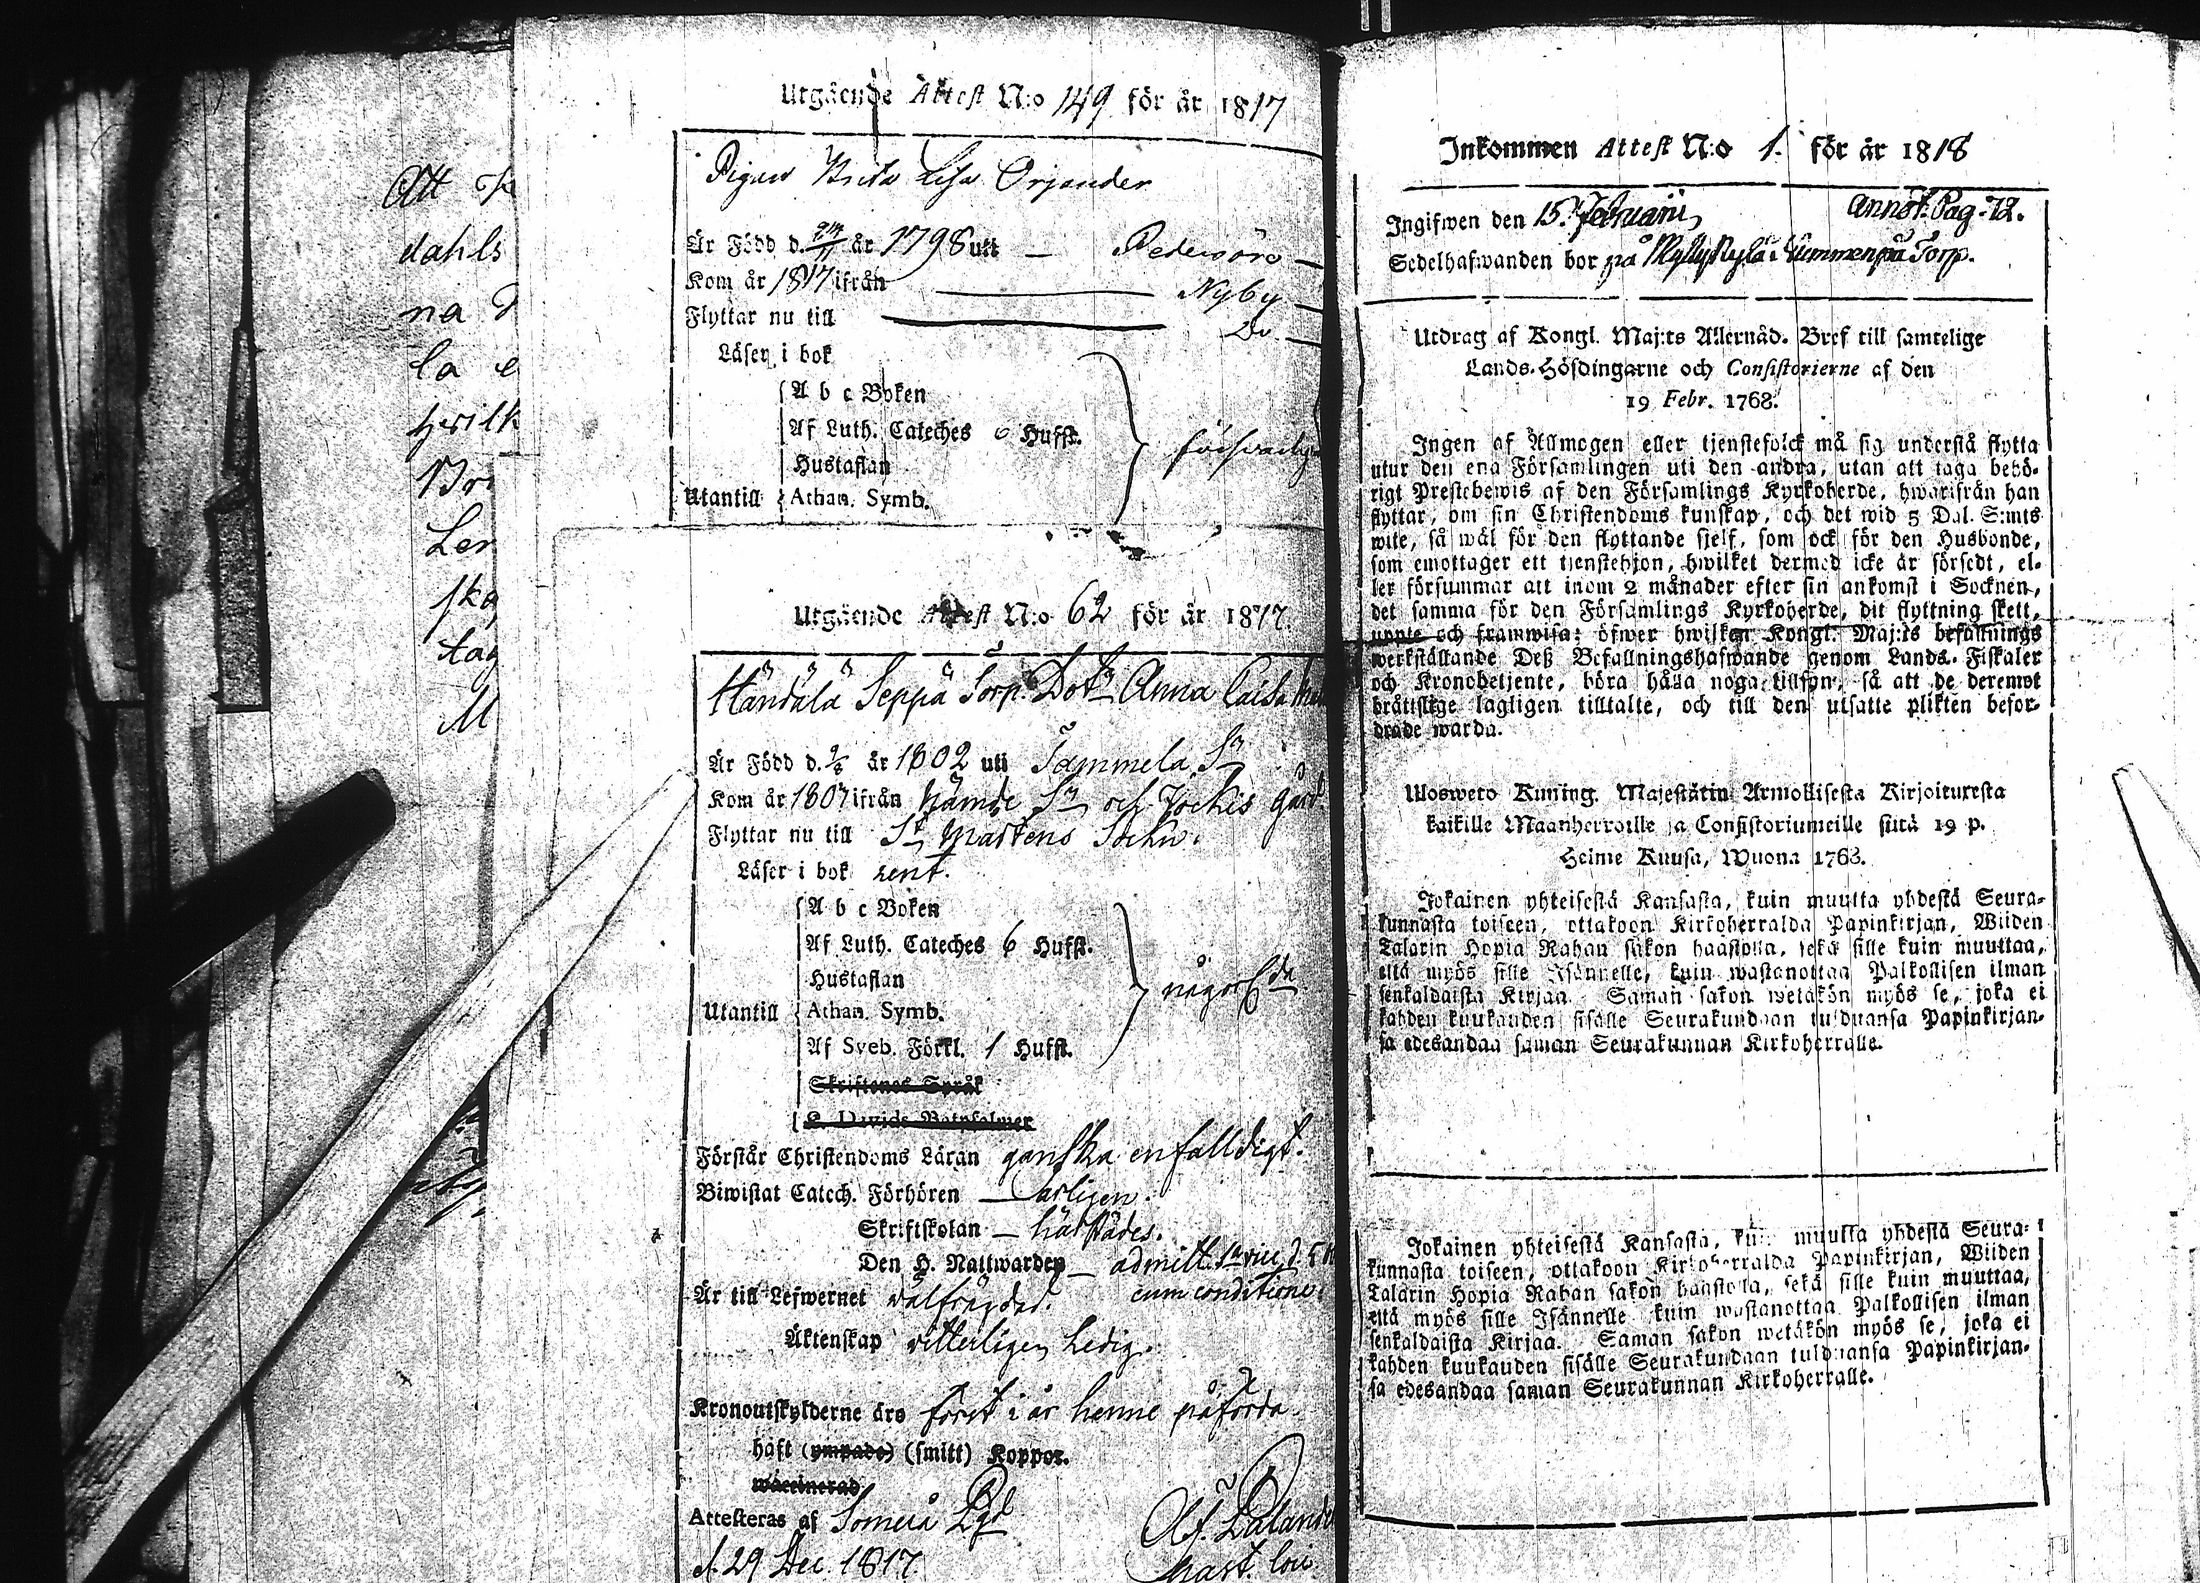 Att
dahls
na
la e
Bri
Ler
ska
tag
M
Utgående Attest N:o 149 för år 1817
Pigan Brita Lisa Orjander
Är Född d. 24/11 år 1798 uti — Pedersöre —
Kom år 1817 ifrån Nyby —
Flyttar nu till Do. —
Läser i bok
A b c Boken
Af Luth. Cateches 6 Hufst.
Hustaflan
Utantill Athan. Symb.
Utgående Attest N:o 62 för år 1817.
Händälä Seppä Torp. Dotr Anna Caisa
Är Född d. 2/8 år 1802 uti Tammela Sn
Kom år 1807 ifrån nämde Sn och Jockis Gård
Flyttar nu till St Martens Sockn.
Läser i bok rent.
A b c Boken
Af Luth. Cateches 6 Hufst.
Hustaflan
Utantill Athan. Symb.
Af Sveb. Förkl. 1 Hufst.
Skriftenes Språk
K. Davids Botpsalmer
Förstår Christendoms Läran ganska enfalldigt.
Biwistat Catech. Förhören — årligen.
Skriftskolan — härstädes.
Den H. Nattwarden — admitt. 1a vice
cum conditione.
Är till Lefwernet välfrägdad.
Äktenskap vitterligen Ledig.
Kronoutskylderne äro först i år henne påförda.
haft (ympade) (smitt) Koppor.
waccinerad
Attesteras af Somero Pgd
d. 29 Dec. 1817.
Inkommen Attest N:o 1. för år 1818
Ingifwen den 15. Februarii Annot. Pag. 72.
Sedelhafwanden bor på Myllykylä Nummenpää Torp.
Utdrag af Kongl. Maj:ts Allernåd. Bref till samtelige
Lands-Höfdingarne och Consistorierne af den
19 Febr. 1768.
Ingen af Allmogen eller tjenstefolck må sig understå flytta
utur den ena Församlingen uti den andra, utan att taga behö-
rigt Prestebewis af den Församlings Kyrkoherde, hwarifrån han
flyttar, om sin Christendoms kunskap, och det wid 5 Dal. S:mts
wite, så wäl för den flyttande sjelf, som ock för den Husbonde,
som emottager ett tjenstehjon, hwilket dermed icke är försedt, el-
ler försummar att inom 2 månader efter sin ankomst i Socknen,
det samma för den Församlings Kyrkoherde, dit flyttning skett,
uppte och framwisa: öfwer hwilken Kongl. Maj:ts befallnings
werkställande Deß Befallningshafwande genom Lands-Fiskaler
och Kronobetjente, böra hålla noga tillsyn, så att de deremot
bråttslige lagligen tilltalte, och till den utsatte plikten befor-
drade warda.
Ulosweto Kuning. Majestätin Armollisesta Kirjoituxesta
kaikille Maanherroille ja Consistoriumeille siitä 19 p.
Helme Kuusa, Wuona 1768.
Jokainen yhteisestä Kansasta, kuin muutta yhdestä Seura-
kunnasta toiseen, ottakoon Kirkoherralda Papinkirjan, Wiiden
Talarin Hopia Rahan sakon haastolla, sekä sille kuin muuttaa,
että myös sille Isännelle, kuin wastanottaa Palkollisen ilman
senkaldaista Kirjaa. Saman sakon wetäkön myös se, joka ei
kahden kuukauden sisälle Seurakundaan tulduansa Papinkirjan-
sa edesandaa saman Seurakunnan Kirkoherralle.
Jokainen yhteisestä Kansasta, kuin muutta yhdestä Seura-
kunnasta toiseen, ottakoon Kirkoherralda Papinkirjan, Wiiden
Talarin Hopia Rahan sakon haastolla, sekä sille kuin muuttaa,
että myös sille Isännelle kuin wastanottaa Palkollisen ilman
senkaldaista Kirjaa. Saman sakon wetäkön myös se, joka ei
kahden kuukauden sisälle Seurakundaan tulduansa Papinkirjan-
sa edesandaa saman Seurakunnan Kirkoherralle.